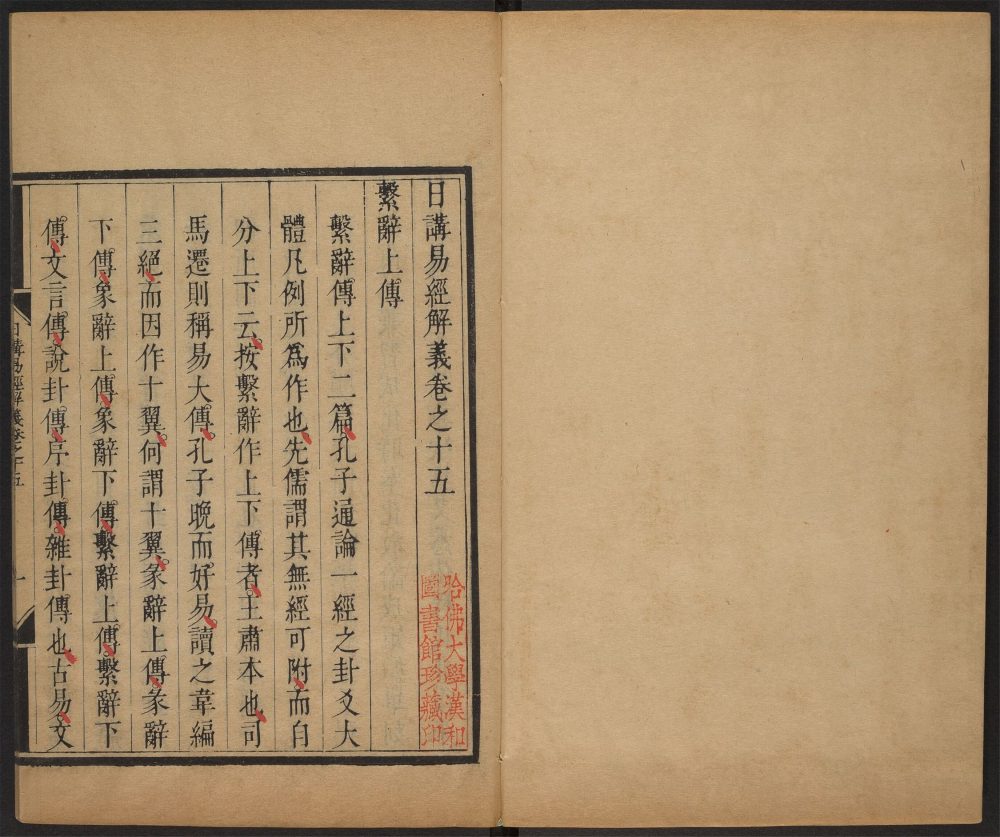 日講易經解義卷之十五
哈佛大學漢和
圖書館珍藏印
繫辭上傳
繫辭傳上下二篇孔子通論一經之卦爻大
體凡例所爲作也先儒謂其無經可附而自
分上下云按繫辭作上下傳者王肅本也司
馬遷則稱易大傳孔子晚而好易讀之韋編
三絕而因作十翼何謂十翼彖辭上傳彖辭
下傳象辭上傳象辭下傳繫辭上傳繫辭下
傳文言傳說卦傳序卦傳雜卦傳也古易文
日講易經解義卷之十五 一